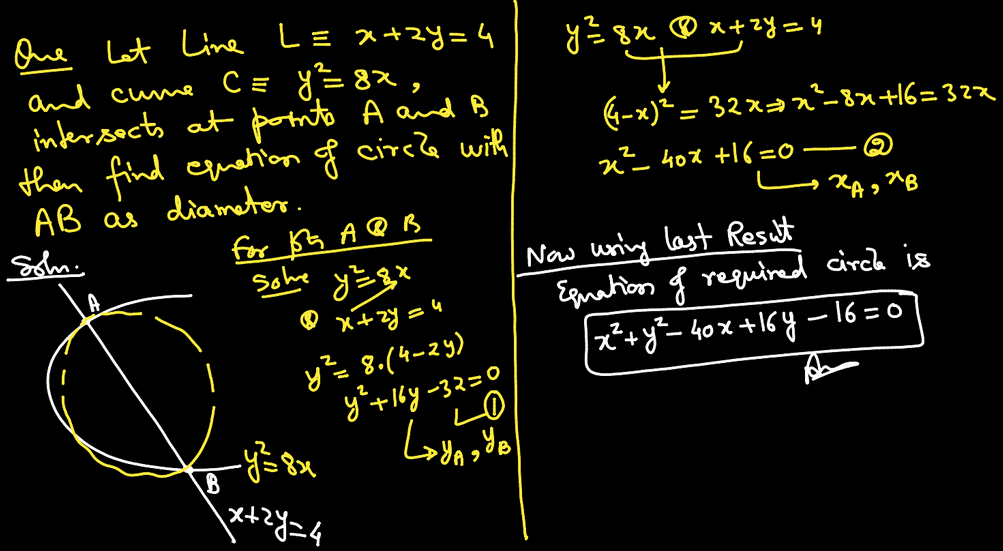 Que Let Line L ≡ x+2y=4
and curve C ≡ y²=8x,
intersects at points A and B
then find equation of circle with
AB as diameter.
Soln.
A
B
y²=8x
x+2y=4
for pts A & B
Solve y²=8x
& x+2y=4
y²=8.(4-2y)
y²+16y-32=0
①
y_A, y_B
y²=8x & x+2y=4
(4-x)²=32x⇒x²-8x+16=32x
x²-40x+16=0 — ②
x_A, x_B
Now using last Result
Equation of required circle is
x²+y²-40x+16y-16=0